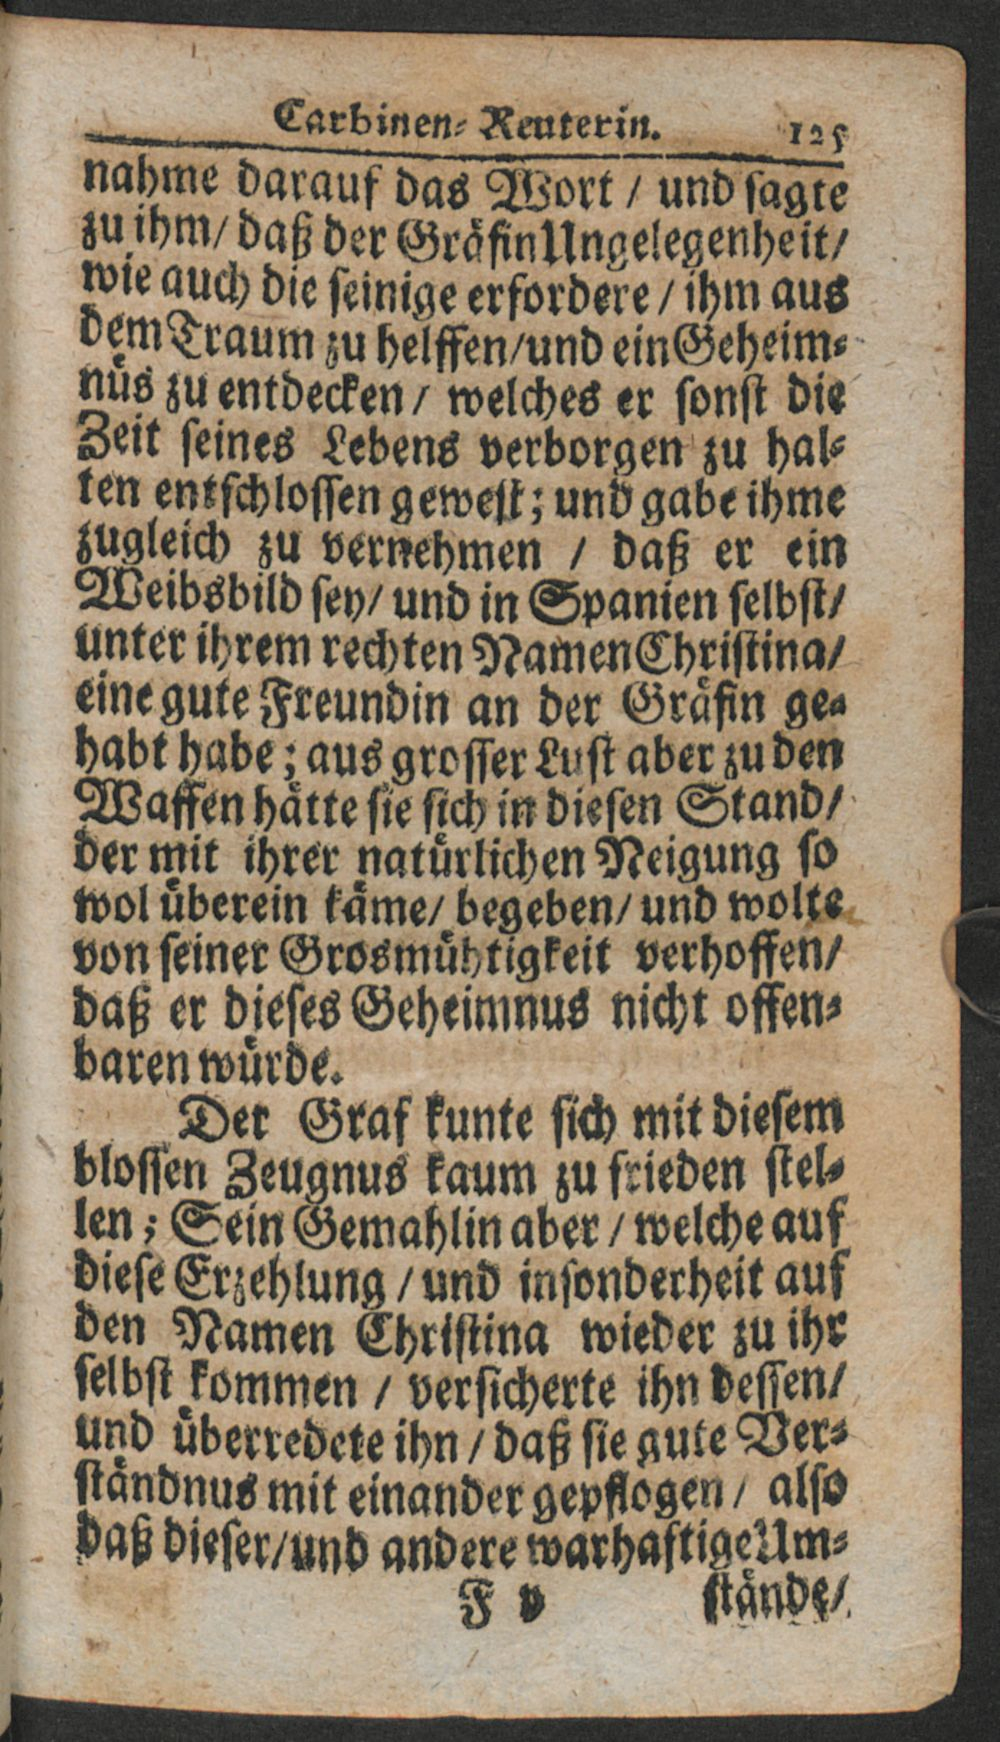 Carbinen-Reuterin. 125
nahme darauf das Wort / und sagte
zu ihm/ daß der Gräfin Ungelegenheit/
wie auch die seinige erfordere / ihm aus
dem Traum zu helffen/und ein Geheim-
nüs zu entdecken / welches er sonst die
Zeit seines Lebens verborgen zu hal-
ten entschlossen gewest; und gabe ihme
zugleich zu vernehmen / daß er ein
Weibsbild sey/ und in Spanien selbst/
unter ihrem rechten Namen Christina/
eine gute Freundin an der Gräfin ge-
habt habe; aus grosser Lust aber zu den
Waffen hätte sie sich in diesen Stand/
der mit ihrer natürlichen Neigung so
wol überein käme/ begeben/ und wolte
von seiner Grosmühtigkeit verhoffen/
daß er dieses Geheimnus nicht offen-
baren würde.
Der Graf kunte sich mit diesem
blossen Zeugnus kaum zu frieden stel-
len; Sein Gemahlin aber / welche auf
diese Erzehlung / und insonderheit auf
den Namen Christina wieder zu ihr
selbst kommen / versicherte ihn dessen/
und überredete ihn / daß sie gute Ver-
ständnus mit einander gepflogen / also
daß dieser/und andere warhaftige Um-
F v stände/